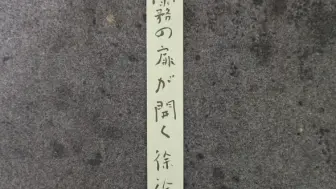 の扉が開く徐